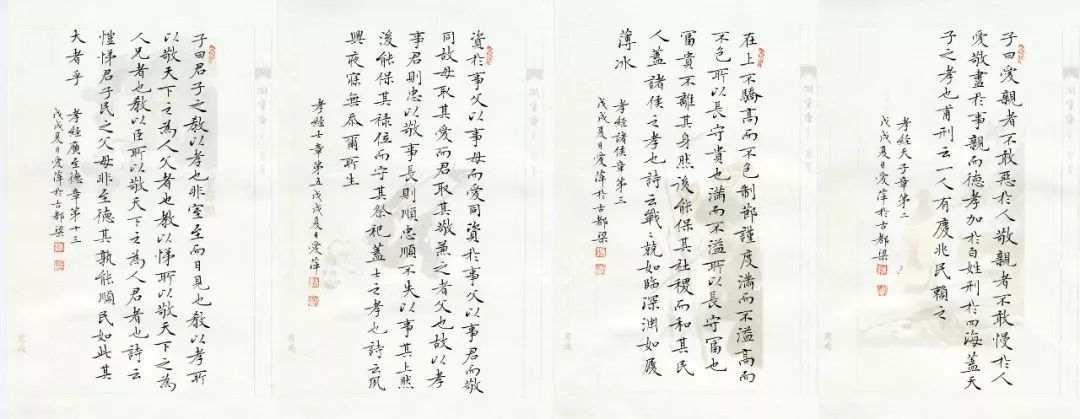 子曰愛親者不敢惡於人敬親者不敢慢於人
愛敬盡於事親而德孝加於百姓刑於四海蓋天
子之孝也甫刑云一人有慶兆民賴之
孝經天子章第二
戊戌夏日愛萍於古都梁
在上不驕高而不危制節謹度滿而不溢高而
不危所以長守貴也滿而不溢所以長守富也
富貴不離其身然後能保其社稷而和其民
人蓋諸侯之孝也詩云戰〻兢如臨深淵如履
薄冰
孝經諸侯章第三
戊戌夏日愛萍於古都梁
資於事父以事母而愛同資於事父以事君而敬
同故母取其愛而君取其敬兼之者父也故以孝
事君則忠以敬事長則順忠順不失以事其上然
後能保其祿位而守其祭祀蓋士之孝也詩云夙
興夜寐無忝爾所生
孝經士章第五戊戌夏日愛萍
子曰君子之教以孝也非室至而日見也教以孝所
以敬天下之為人父者也教以悌所以敬天下之為
人兄者也教以臣所以敬天下之為人君者也詩云
愷悌君子民之父母非至德其孰能順民如此其
大者乎
孝經廣至德章第十三
戊戌夏日愛萍於古都梁